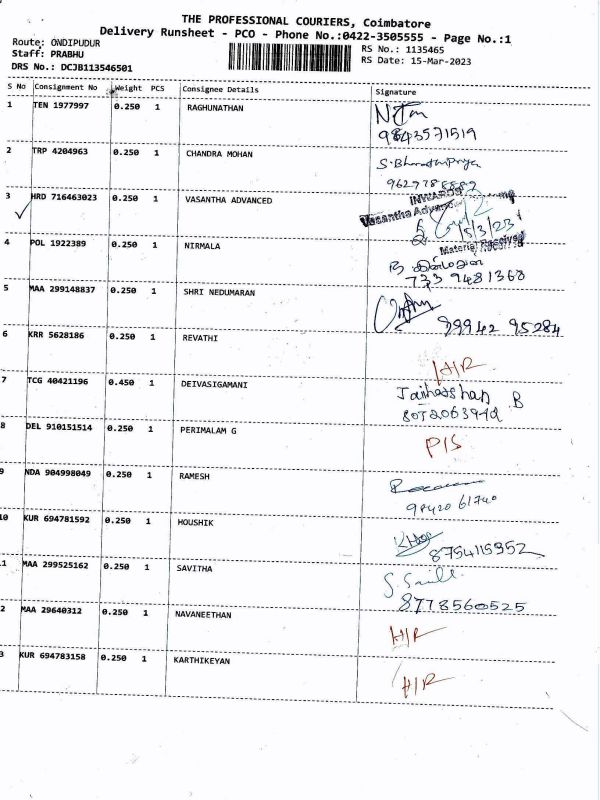 THE PROFESSIONAL COURIERS, Coimbatore
Delivery Runsheet - PCO - Phone No.:0422-3505555 - Page No.:1
Route: ONDIPUDUR
Staff: PRABHU
DRS No.: DCJB113546501
RS No.: 1135465
RS Date: 15-Mar-2023
S No Consignment No Weight PCS Consignee Details Signature
1 TEN 1977997 0.250 1 RAGHUNATHAN
9843571519
2 TRP 4204963 0.250 1 CHANDRA MOHAN S. Bharathi Priya
3 HRD 716463023 0.250 1 VASANTHA ADVANCED
INWARDS
Vasantha Advanced
15/3/23
Material Received
4 POL 1922389 0.250 1 NIRMALA
733 9481368
5 MAA 299148837 0.250 1 SHRI NEDUMARAN
99942 95284
6 KRR 5628186 0.250 1 REVATHI
H/R
7 TCG 40421196 0.450 1 DEIVASIGAMANI
B
8 DEL 910151514 0.250 1 PERIMALAM G
P/S
9 NDA 904998049 0.250 1 RAMESH
98420 61740
10 KUR 694781592 0.250 1 HOUSHIK
8754115952
1 MAA 299525162 0.250 1 SAVITHA
8778560525
2 MAA 29640312 0.250 1 NAVANEETHAN
H/R
3 KUR 694783158 0.250 1 KARTHIKEYAN
H/R